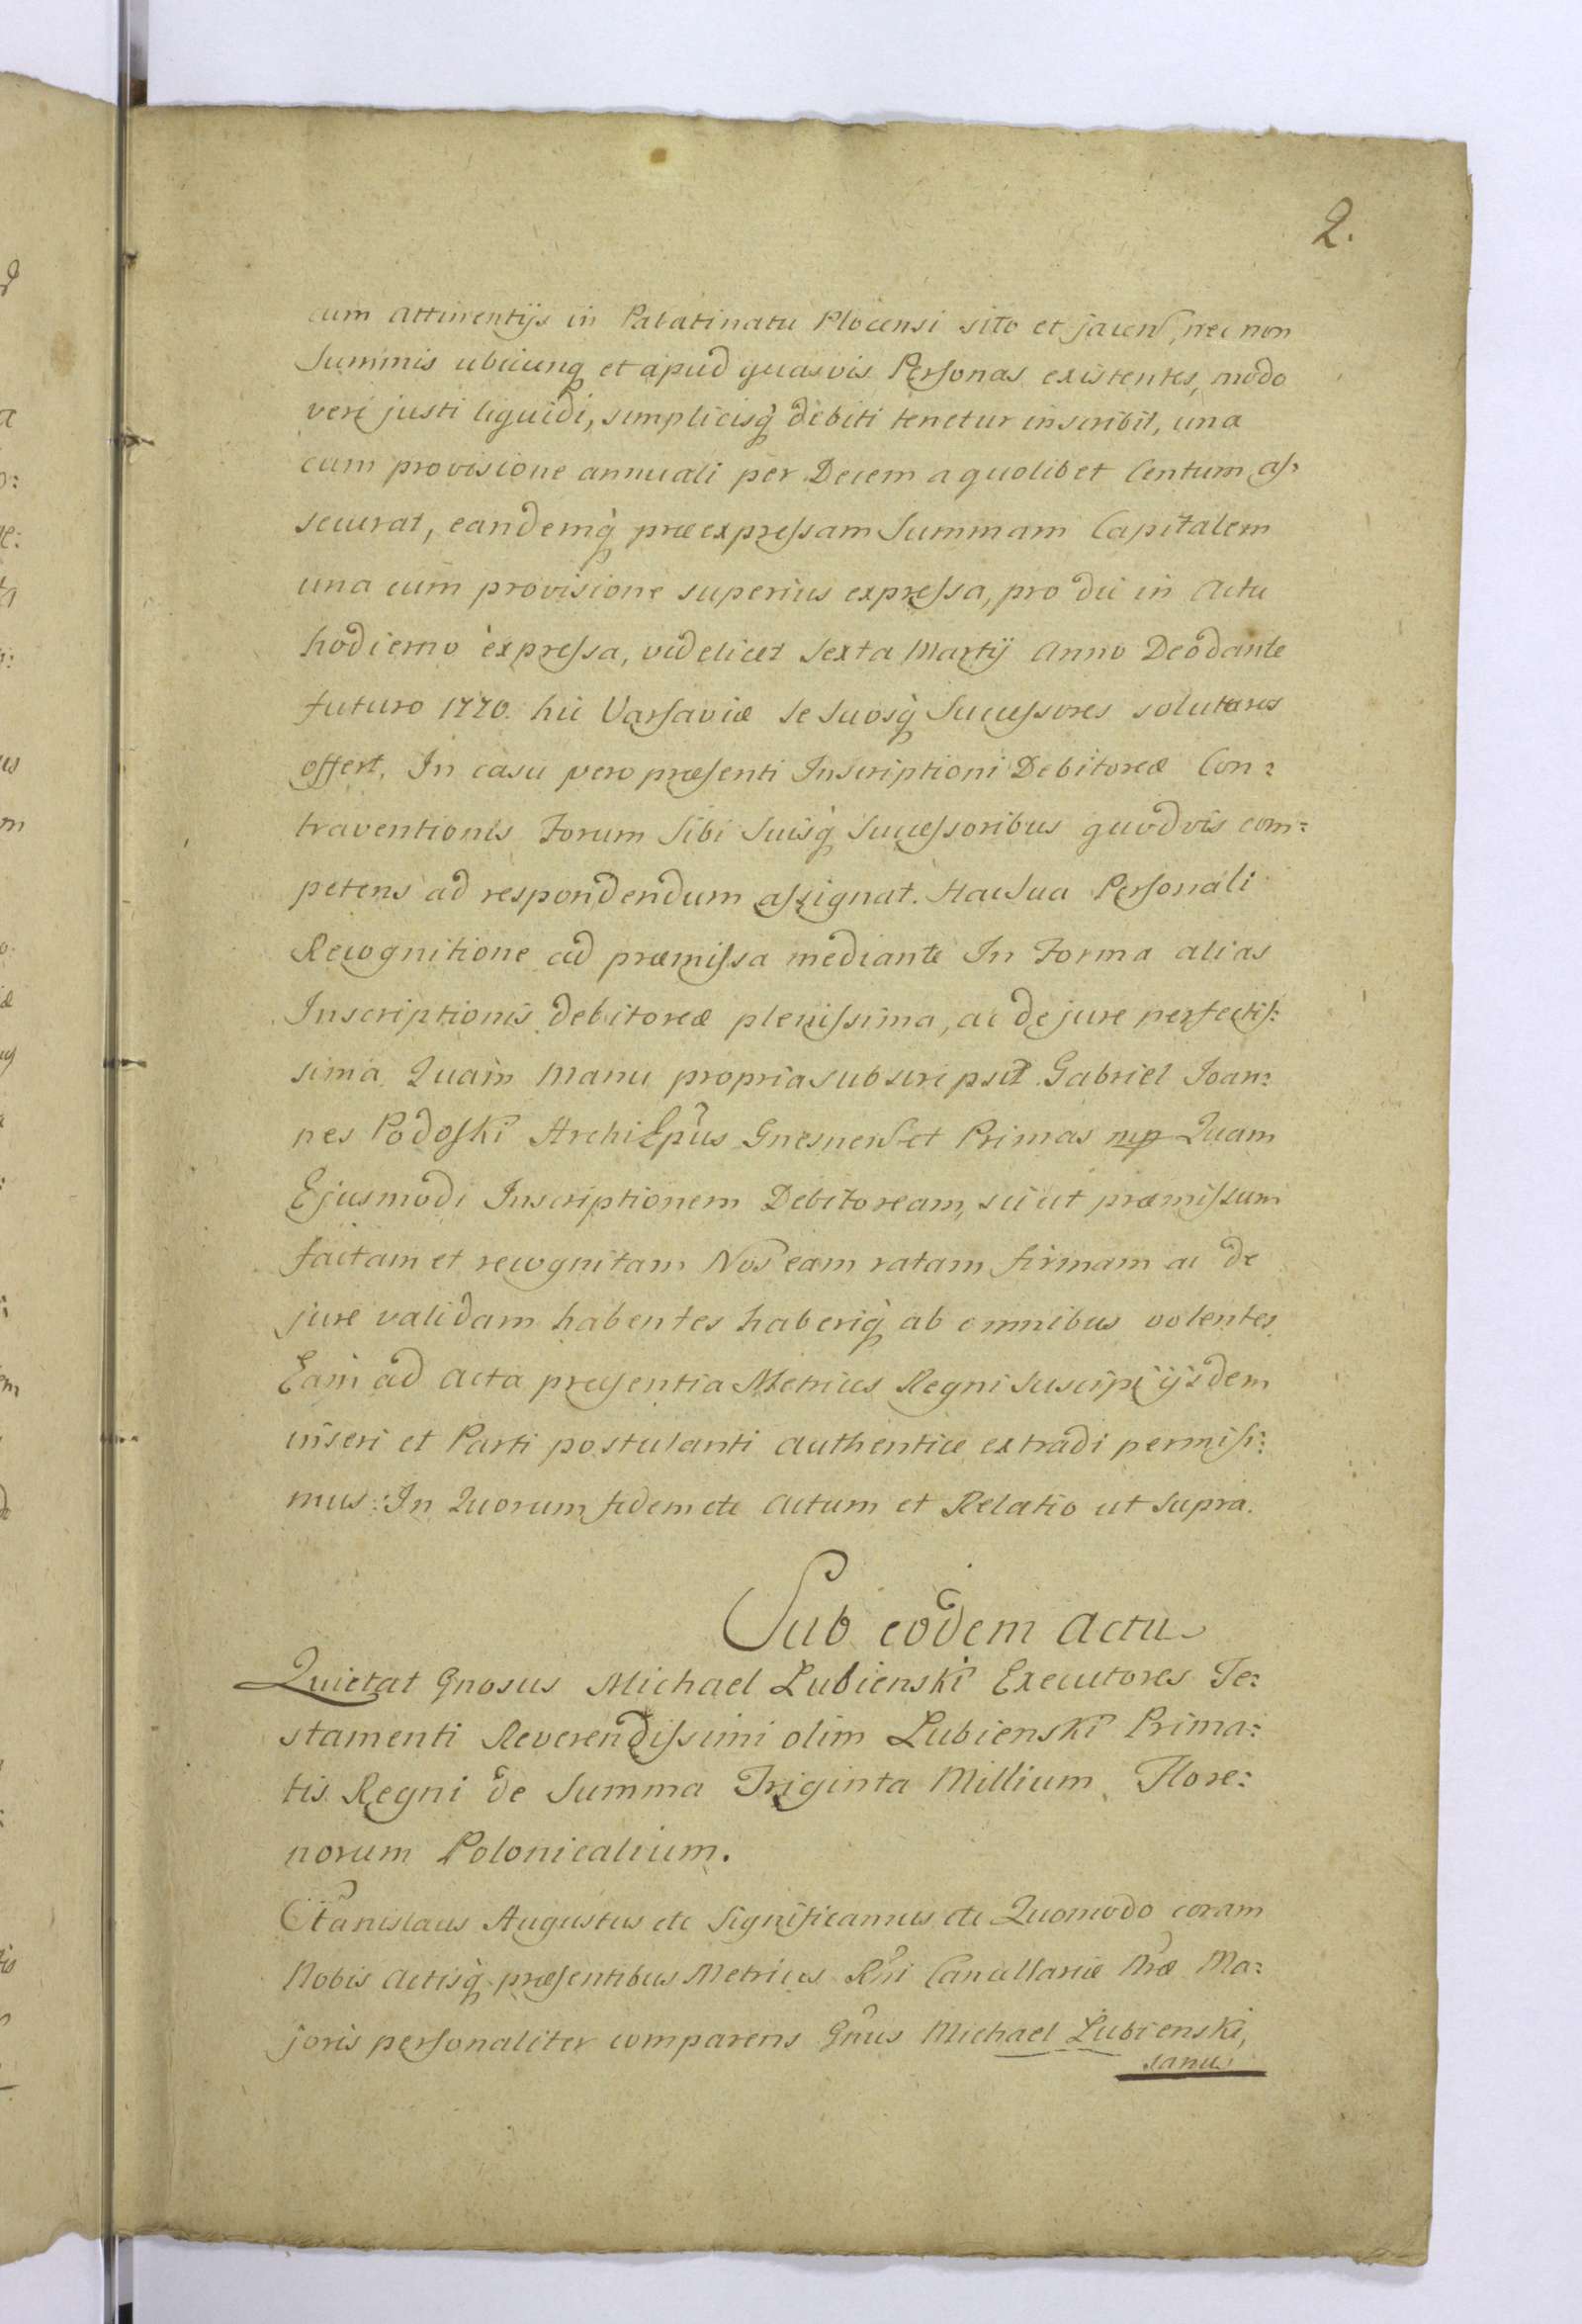 2.
cum attinentijs in Palatinatu Plocensi sito et jacen, nec non
Summis ubicunq et apud quasvis Personas existentes, modo
veri justi liquidi, simplicisq debiti tenetur inscribit, una
cum provisione annuali per Decem a quolibet Centum as:
securat, eandemq præexpressam Summam Capitalem
una cum provisione superius expressa, pro die in Actu
hodierno expressa, videlicet Sexta Martij Anno Deodante
futuro 1770. hic Varsaviæ Se Suosq Successores soluturos
offert, In casu vero præsenti Inscriptioni Debitoreæ Con:
traventionis Forum Sibi Suisq Successoribus quodvis com:
petens ad respondendum assignat. Hac Sua Personali
Recognitione ad præmissa mediante In Forma alias
Inscriptionis debitoreæ plenissima, ac de jure perfectis:
sima. Quam Manu propria subscripsit Gabriel Joan:
nes Podoski ArchiEpus Gnesnens et Primas mp Quam
Ejusmodi Inscriptionem Debitoream, sicut præmissum
factam et recognitam Nos eam ratam firmam ac de
jure validam habentes haberiq ab omnibus volentes
Eam ad Acta præsentia Metrices Regni Suscipi ijsdem
inseri et Parti postulanti authentice extradi permisi:
mus: In Quorum fidem etc Actum et Relatio ut Supra.
Sub eodem Actu
Quietat Gnosus Michael Lubienski Executores Te:
stamenti Reverendissimi olim Lubienski Prima:
tis Regni de Summa Triginta Millium Flore:
norum Polonicalium.
Stanislaus Augustus etc Significamus etc Quomodo coram
Nobis Actisq præsentibus Metrices Rni Cancellariæ Nræ Ma:
joris personaliter comparens Gnus Michael Lubienski,
sanus